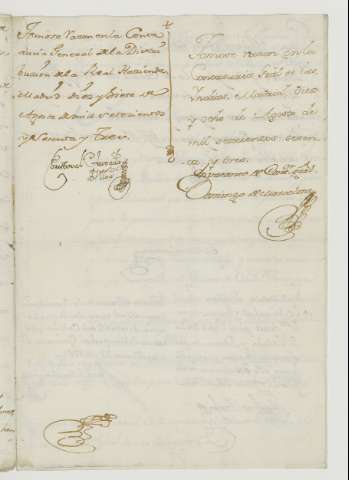 Tomose Razon en la Conta
duria General de la Distri
bucion de la Real Hacienda
Madrid diez y siete de
Agosto de mil setecientos
y sesenta y tres
Tomose razon en la
Contaduria Gral de las
Indias. Madrid diez
y ocho de Agosto de
mil setecientos sesen
ta y tres.
Domingo de Marcoleta